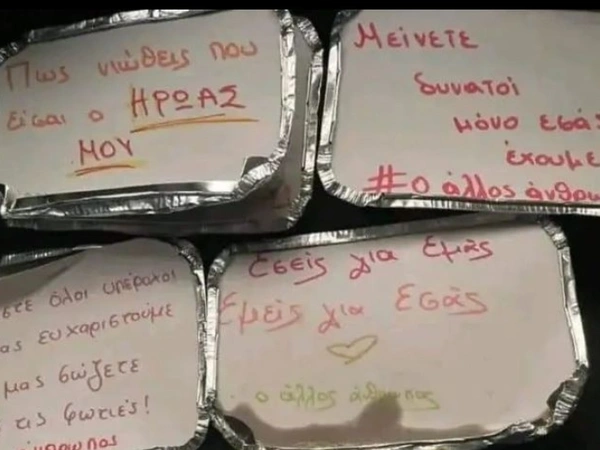 Πως νιώθεις που
είσαι ο ΗΡΩΑΣ
ΜΟΥ
Μείνετε
δυνατοί
μόνο εσά
έχουμε
#ο άλλος άνθρω
στε όλοι υπέροχοι
ας ευχαριστούμε
μας σώζετε
τις φωτιές!
Εσείς για εμάς
Εμείς για εσάς
ο άλλος άνθρωπος